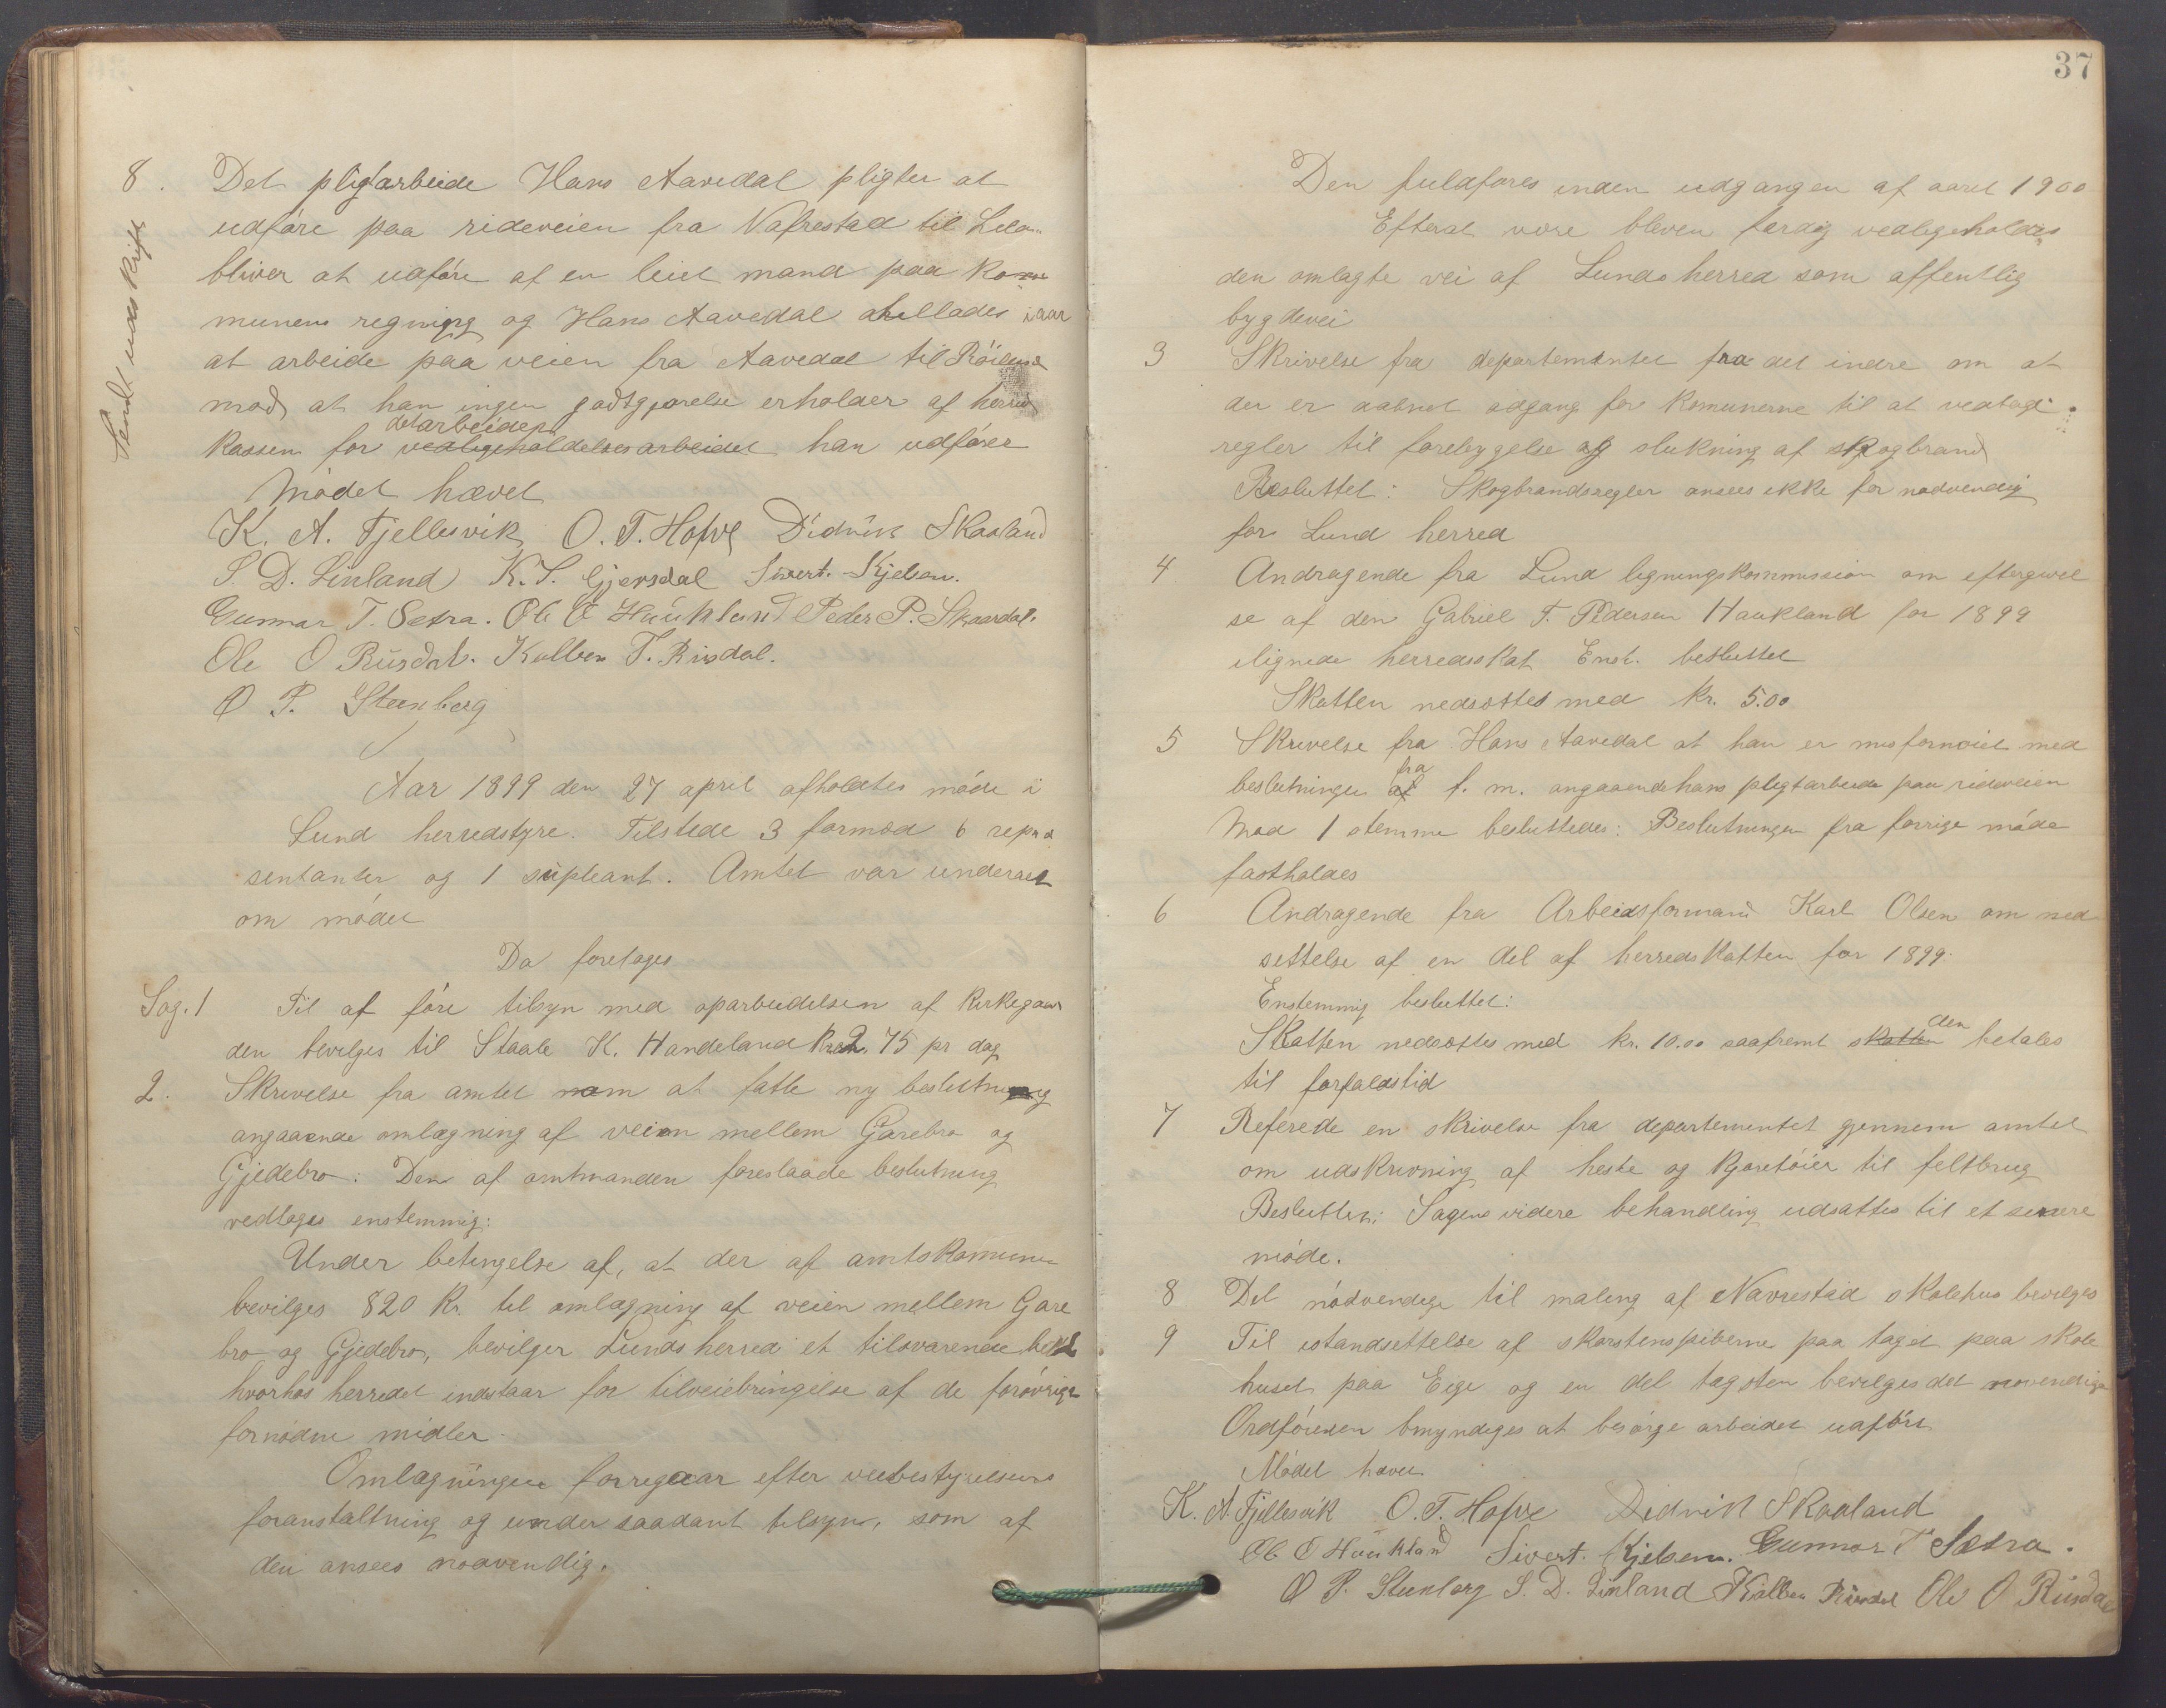 8. Det pligtarbeide Hans Aavedal pligter at
udføre paa rideveien fra Nafrestad til
bliver at udføre af en leiet mand paa kom
munens regning og Hans Aavedal tillades iaar
at arbeide paa veien fra Aavedal til
mod at han ingen godtgjørelse erholder af herreds
det arbeide
kassen for vedligeholdelsesarbeidet han udfører
Sendt udskrift
Mødet hævet
K. A. Fjellesvik O. T. Hofve Didrik Skaaland
S. D. Linland K. S. Gjersdal Sivert. Kjelsen.
Gunnar T. Sætra. Ole O Haukland Peder P. Skaardal.
Ole O Rusdal. Kolben T. Risdal.
O P. Steenberg
Aar 1899 den 27 april afholdtes møde i
Lund herredstyre. Tilstede 3 formæd 6 repræ
sentanter og 1 supleant. Amtet var underret
om mødet
Da foretages
Sag. 1 Til at føre tilsyn med oparbeidelsen af kirkegaar
den bevilges til Staale K. Handeland kr. 2.75 pr dag
2. Skrivelse fra amtet om at fatte ny beslutning
angaaende omlægning af veien mellem Garebro og
Gjedebro: Den af amtmanden foreslaade beslutning
vedtages enstemmig:
Under betingelse af, at der af amtskomunen
bevilges 820 kr. til omlægning af veien mellem Gare
bro og Gjedebro, bevilger Lunds herred et tilsvarende beløb
hvorhos herredet indstaar for tilveiebringelse af de forøvrigt
fornødne midler.
Omlægningen foregaar efter veibestyrelsens
foranstaltning og under saadant tilsyn, som af
den ansees nødvendig.
37
Den fuldføres inden udgangen af aaret 1900
Efterat være bleven færdig vedligeholdes
den omlagte vei af Lunds herred som offentlig
bygdevei
3 Skrivelse fra departementet fra det indre om at
der er aabnet adgang for komunerne til at vedtage
regler til forebygelse og slukning af skogbrand
Besluttet: Skogbrandsregler ansees ikke for nødvendig
for Lund herred
4 Andragende fra Lund ligningskommission om eftergivel
se af den Gabriel T. Pedersen Haukland for 1899
ilignede herredsskat Enst. besluttet
Skatten nedsættes med kr. 5.00
5 Skrivelse fra Hans Aavedal at han er misfornøiet med
fra
beslutningen af f. m. angaaende hans pligtarbeide paa rideveien
Mod 1 stemme besluttedes: Beslutningen fra forrige møde
fastholdes
6 Andragende fra Arbeidsformand Karl Olsen om ned
settelse af en del af herredskatten for 1899.
Enstemmig besluttet:
den
Skatten nedsættes med kr. 10.00 saafremt skatten betales
til forfaldstid
7 Referede en skrivelse fra departementet gjennem amtet
om udskrivning af heste og kjøretøier til feltbrug
Besluttet: Sagens videre behandling udsattes til et senere
møde.
8 Det nødvendige til maling af Navrestad skolehus bevilges
9 Til istandsettelse af skorstenspiberne paa taget paa skole
huset paa Eige og en del tagsten bevilges det nøvendige
Ordføreren bmyndiges at besørge arbeidet udført
Mødet hævet
K. A. Fjellesvik O. T. Hofve Didrik Skaaland
Ole O Haukland Sivert. Kjelsen. Gunnar T Sætra.
O P. Steenberg S. D. Linland Kolben Risdal Ole O Rusdal